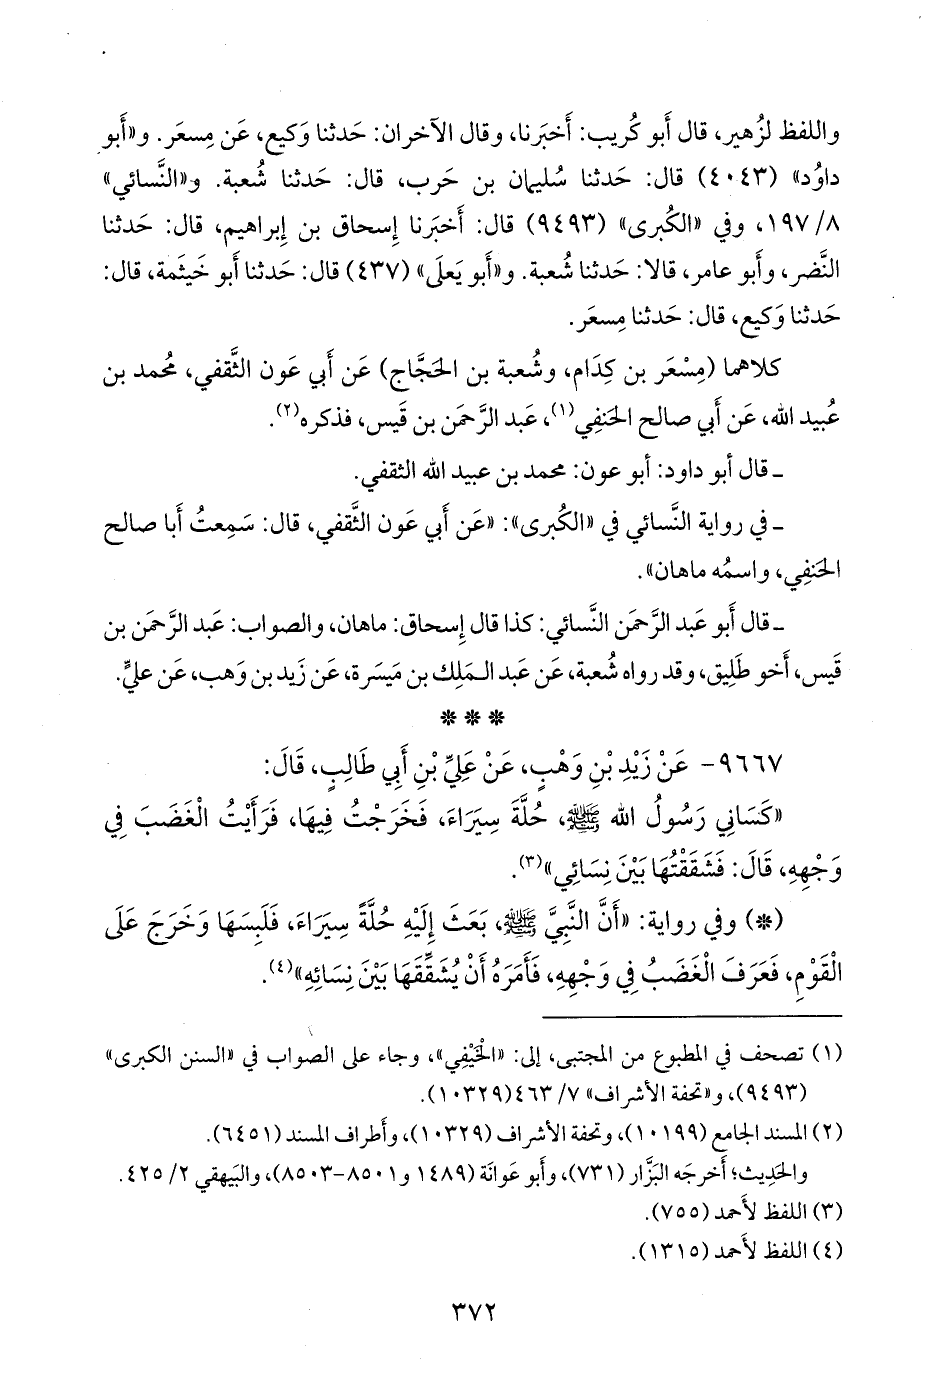 واللفظ لزُهير، قال أَبو كُريب: أَخبَرنا، وقال الآخران: حَدثنا وَكيع، عَن مِسعَر. و«أَبو
داوُد» (٤٠٤٣) قال: حَدثنا سُليمان بن حَرب، قال: حَدثنا شُعبة. و«النَّسائي»
٨/ ١٩٧، وفي «الكُبرى» (٩٤٩٣) قال: أَخبَرنا إِسحاق بن إِبراهيم، قال: حَدثنا
النَّضر، وأَبو عامر، قالا: حَدثنا شُعبة. و«أَبو يَعلَى» (٤٣٧) قال: حَدثنا أَبو خَيثمة، قال:
حَدثنا وَكيع، قال: حَدثنا مِسعَر.
كلاهما (مِسْعَر بن كِدَام، وشُعبة بن الحَجَّاج) عَن أَبي عَون الثَّقفي، مُحمد بن
عُبيد الله، عَن أَبي صالح الحَنفِي(١)، عَبد الرَّحمَن بن قَيس، فذكره(٢).
ـ قال أَبو داود: أَبو عون: محمد بن عبيد الله الثقفي.
ـ في رواية النَّسائي في «الكُبرى»: «عَن أَبي عَون الثَّقفي، قال: سَمِعتُ أَبا صالح
الحَنفِي، واسمُه ماهان».
ـ قال أَبو عَبد الرَّحمَن النَّسائي: كذا قال إِسحاق: ماهان، والصواب: عَبد الرَّحمَن بن
قَيس، أَخو طَلِيق، وقد رواه شُعبة، عَن عَبد الـمَلِك بن مَيسَرة، عَن زَيد بن وَهب، عَن عليٍّ.
* * *
٩٦٦٧- عَنْ زَيْدِ بْنِ وَهْبٍ، عَنْ عَلِيِّ بْنِ أَبِي طَالِبٍ، قَالَ:
«كَسَانِي رَسُولُ الله ﷺ، حُلَّةَ سِيَرَاءَ، فَخَرَجْتُ فِيهَا، فَرَأَيْتُ الْغَضَبَ فِي
وَجْهِهِ، قَالَ: فَشَقَقْتُهَا بَيْنَ نِسَائِي»(٣).
(*) وفي رواية: «أَنَّ النَّبِيَّ ﷺ، بَعَثَ إِلَيْهِ حُلَّةً سِيَرَاءَ، فَلَبِسَهَا وَخَرَجَ عَلَى
الْقَوْمِ، فَعَرَفَ الْغَضَبُ فِي وَجْهِهِ، فَأَمَرَهُ أَنْ يُشَقِّقَهَا بَيْنَ نِسَائِهِ»(٤).
(١) تصحف في المطبوع من المجتبى، إلى: «الْخَيْفِي»، وجاء على الصواب في «السنن الكبرى»
(٩٤٩٣)، و«تحفة الأشراف» ٧/ ٤٦٣(١٠٣٢٩).
(٢) المسند الجامع (١٠١٩٩)، وتحفة الأشراف (١٠٣٢٩)، وأطراف المسند (٦٤٥١).
والحَدِيث؛ أَخرجَه البَزَّار (٧٣١)، وأَبو عَوانَة (١٤٨٩ و٨٥٠١-٨٥٠٣)، والبَيهقي ٢/ ٤٢٥.
(٣) اللفظ لأَحمد (٧٥٥).
(٤) اللفظ لأَحمد (١٣١٥).
٣٧٢